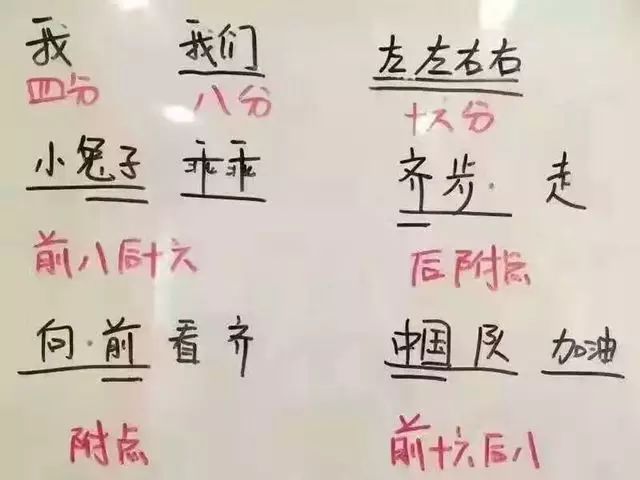 我 我们 左左右右
四分 八分 十六分
小兔子 乖乖 齐步· 走
前八后十六 后附点
向·前看齐 中国队 加油
附点 前十六后八